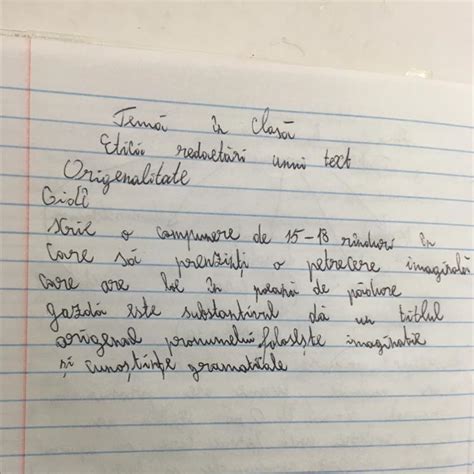 Temă în clasă
Etica redactări unui text
Origenalitate
Gidi
Scrie o compunere de 15-18 rînduri în
care să prenzinți o petrecere imaginală
care are loc în poeană de pădure
gazdă este substantivul dă un titlul
origenal pronumelui folosește imaginatie
și cunoștințe gramaticale